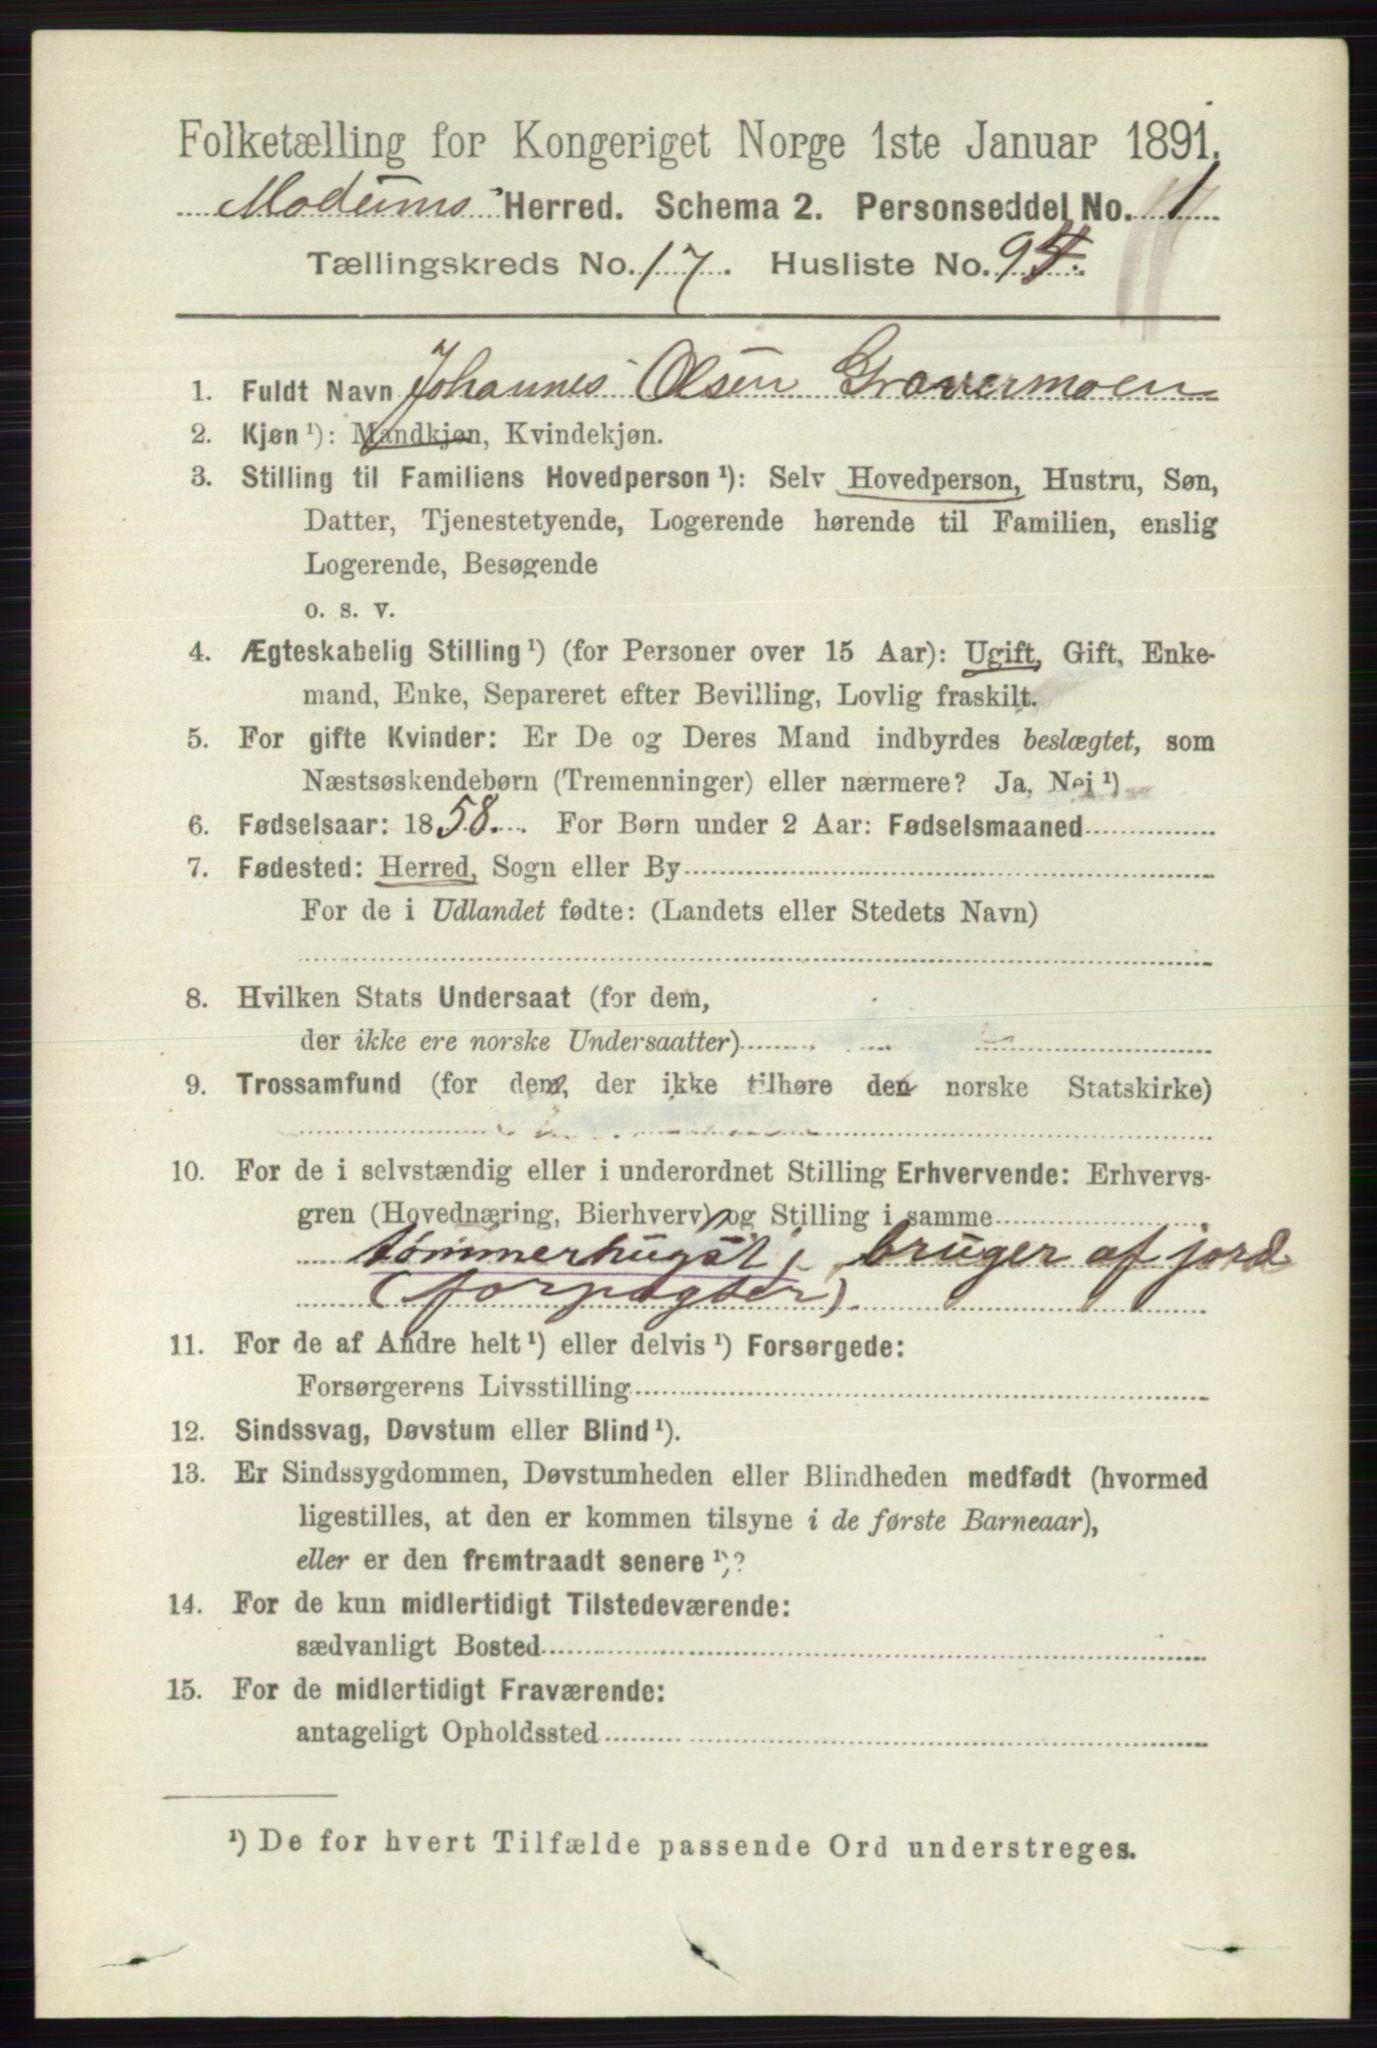 Folketælling for Kongeriget Norge 1ste Januar 1891.
Modums Herred. Schema 2. Personseddel No. 1
Tællingskreds No. 17. Husliste No. 94.
1. Fuldt Navn Johannes Olsen Gravermoen
2. Kjøn ¹): Mandkjøn, Kvindekjøn.
3. Stilling til Familiens Hovedperson ¹): Selv Hovedperson, Hustru, Søn,
Datter, Tjenestetyende, Logerende hørende til Familien, enslig
Logerende, Besøgende
o. s. v.
4. Ægteskabelig Stilling ¹) (for Personer over 15 Aar): Ugift, Gift, Enke-
mand, Enke, Separeret efter Bevilling, Lovlig fraskilt.
5. For gifte Kvinder: Er De og Deres Mand indbyrdes beslægtet, som
Næstsøskendebørn (Tremenninger) eller nærmere? Ja, Nei ¹)
6. Fødselsaar: 1858. For Børn under 2 Aar: Fødselsmaaned
7. Fødested: Herred, Sogn eller By
For de i Udlandet fødte: (Landets eller Stedets Navn)
8. Hvilken Stats Undersaat (for dem,
der ikke ere norske Undersaatter)
9. Trossamfund (for dem, der ikke tilhøre den norske Statskirke)
10. For de i selvstændig eller i underordnet Stilling Erhvervende: Erhvervs-
gren (Hovednæring, Bierhverv) og Stilling i samme
tømmerhugst, bruger af jord
(forpagter).
11. For de af Andre helt ¹) eller delvis ¹) Forsørgede:
Forsørgerens Livsstilling
12. Sindssvag, Døvstum eller Blind ¹).
13. Er Sindssygdommen, Døvstumheden eller Blindheden medfødt (hvormed
ligestilles, at den er kommen tilsyne i de første Barneaar),
eller er den fremtraadt senere ¹)?
14. For de kun midlertidigt Tilstedeværende:
sædvanligt Bosted
15. For de midlertidigt Fraværende:
antageligt Opholdssted
¹) De for hvert Tilfælde passende Ord understreges.